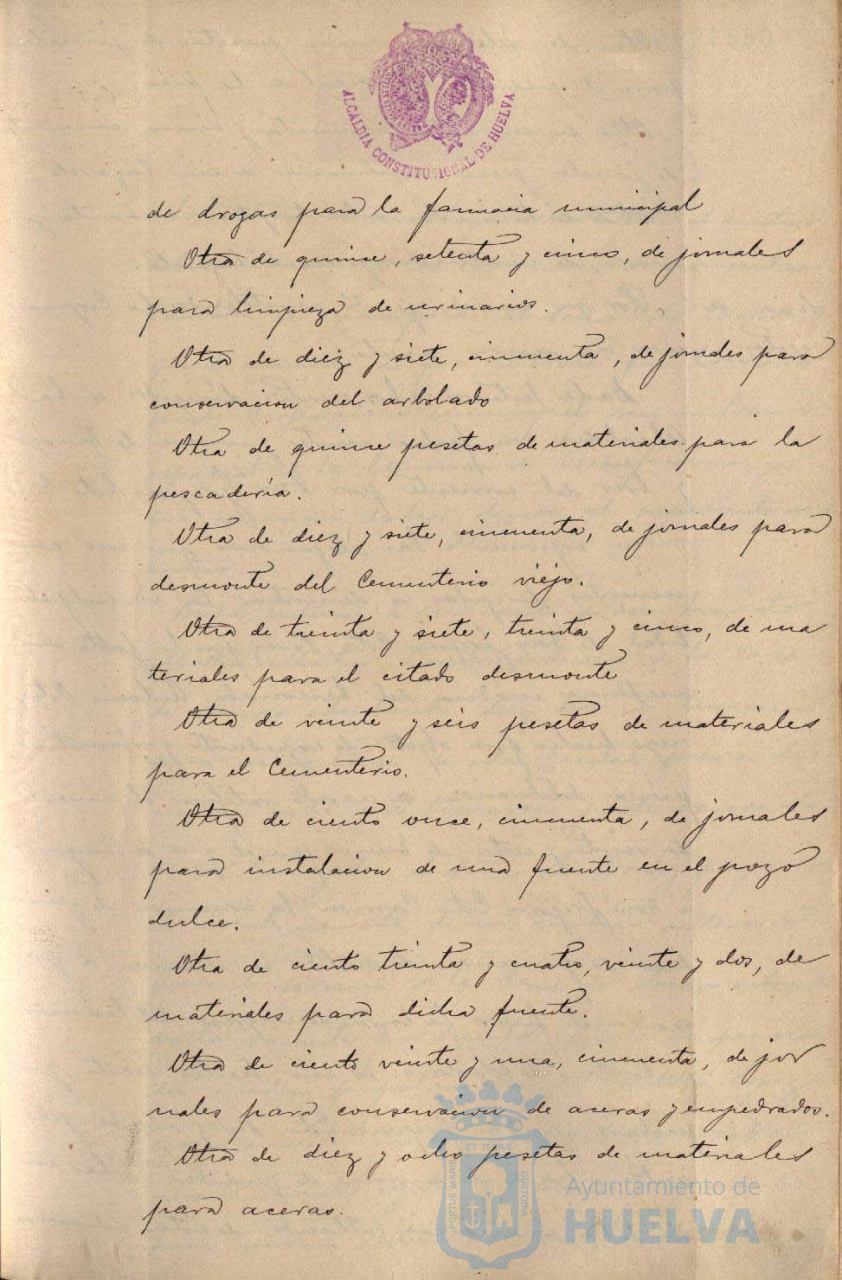 ALCALDIA CONSTITUSIONAL DE HUELVA
de drogas para la farmacia municipal
Otra de quince, setenta y cinco, de jornales
para limpieza de urinarios.
Otra de diez y siete, cincuenta, de jornales para
conservacion del arbolado
Otra de quince pesetas de materiales para la
pescadería.
Otra de diez y siete, cincuenta, de jornales para
desmonte del Cementerio viejo.
Otra de treinta y siete, treinta y cinco, de ma
teriales para el citado desmonte
Otra de veinte y seis pesetas de materiales
para el Cementerio.
Otra de ciento once, cincuenta, de jornales
para instalacion de una fuente en el pozo
dulce.
Otra de ciento treinta y cuatro, veinte y dos, de
materiales para dicha fuente.
Otra de ciento veinte y una, cincuenta, de jor
nales para conservacion de aceras y empedrados.
Otra de diez y ocho pesetas de materiales
para aceras.
Ayuntamiento de
HUELVA